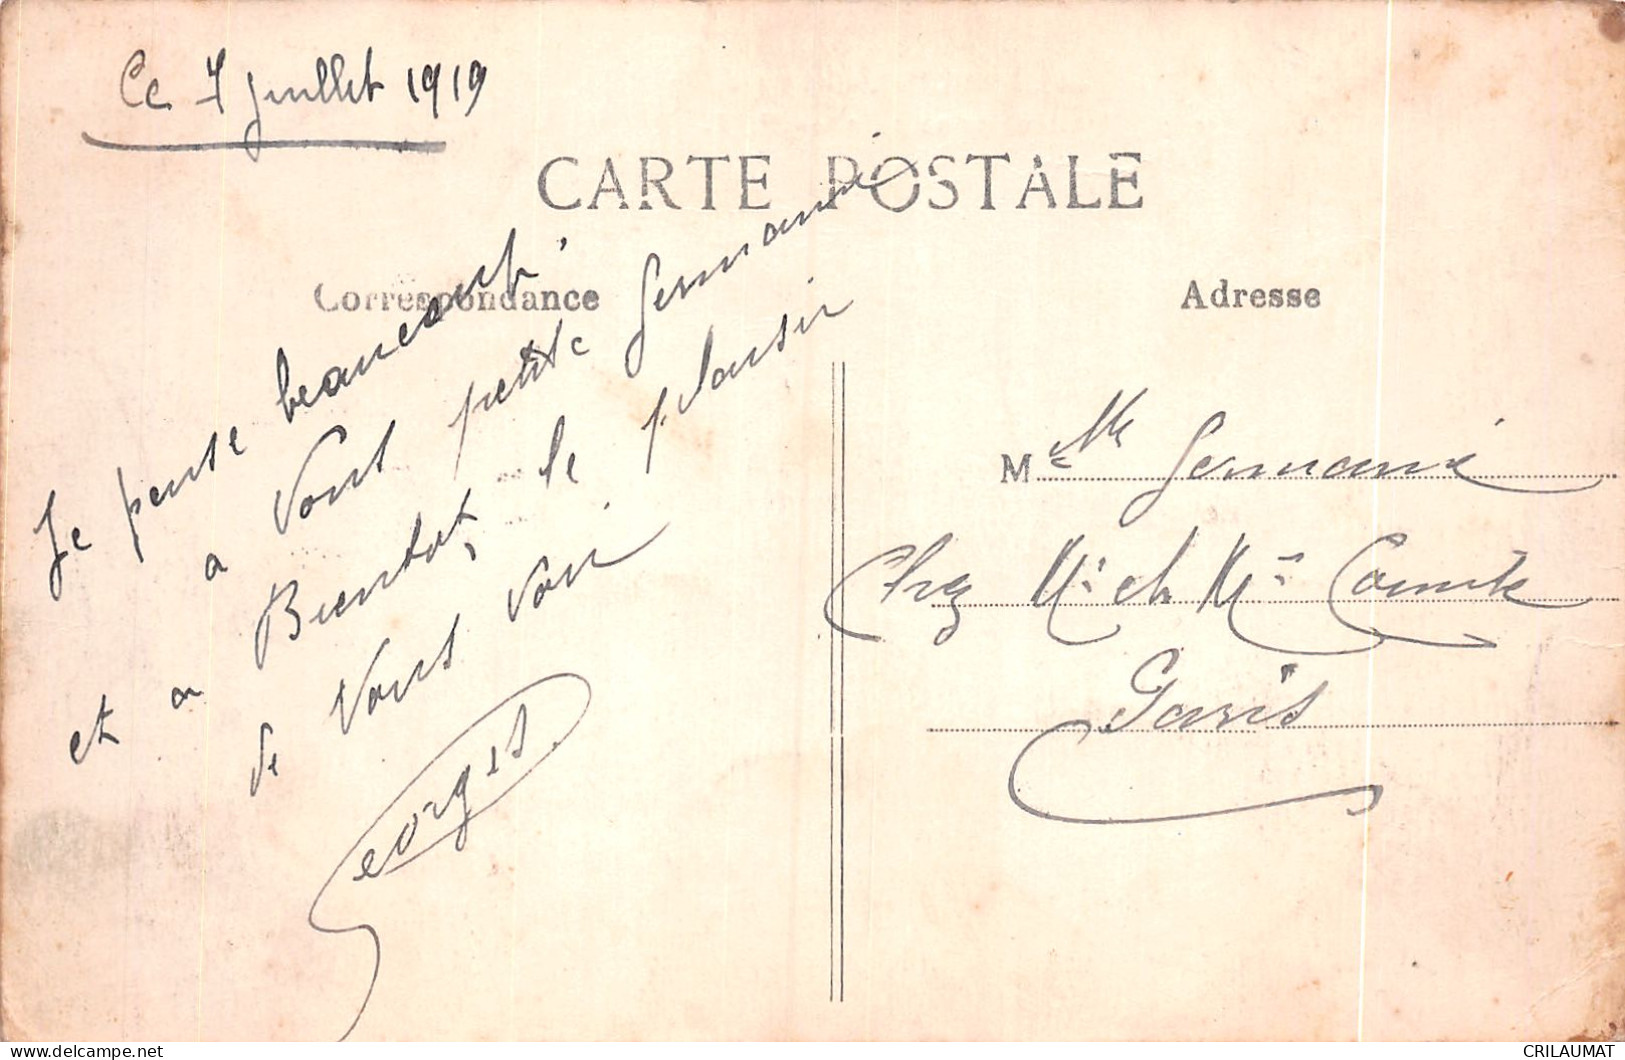 Ce 7 juillet 1919
CARTE POSTALE
Correspondance
Je pense beaucoup
a vous petite Germaine
et a Bientot, le plaisir
de vous voir
Georges
Adresse
Melle Germaine
Chez Mr et Mme Comte
Paris
delcampe.net
CRILAUMAT